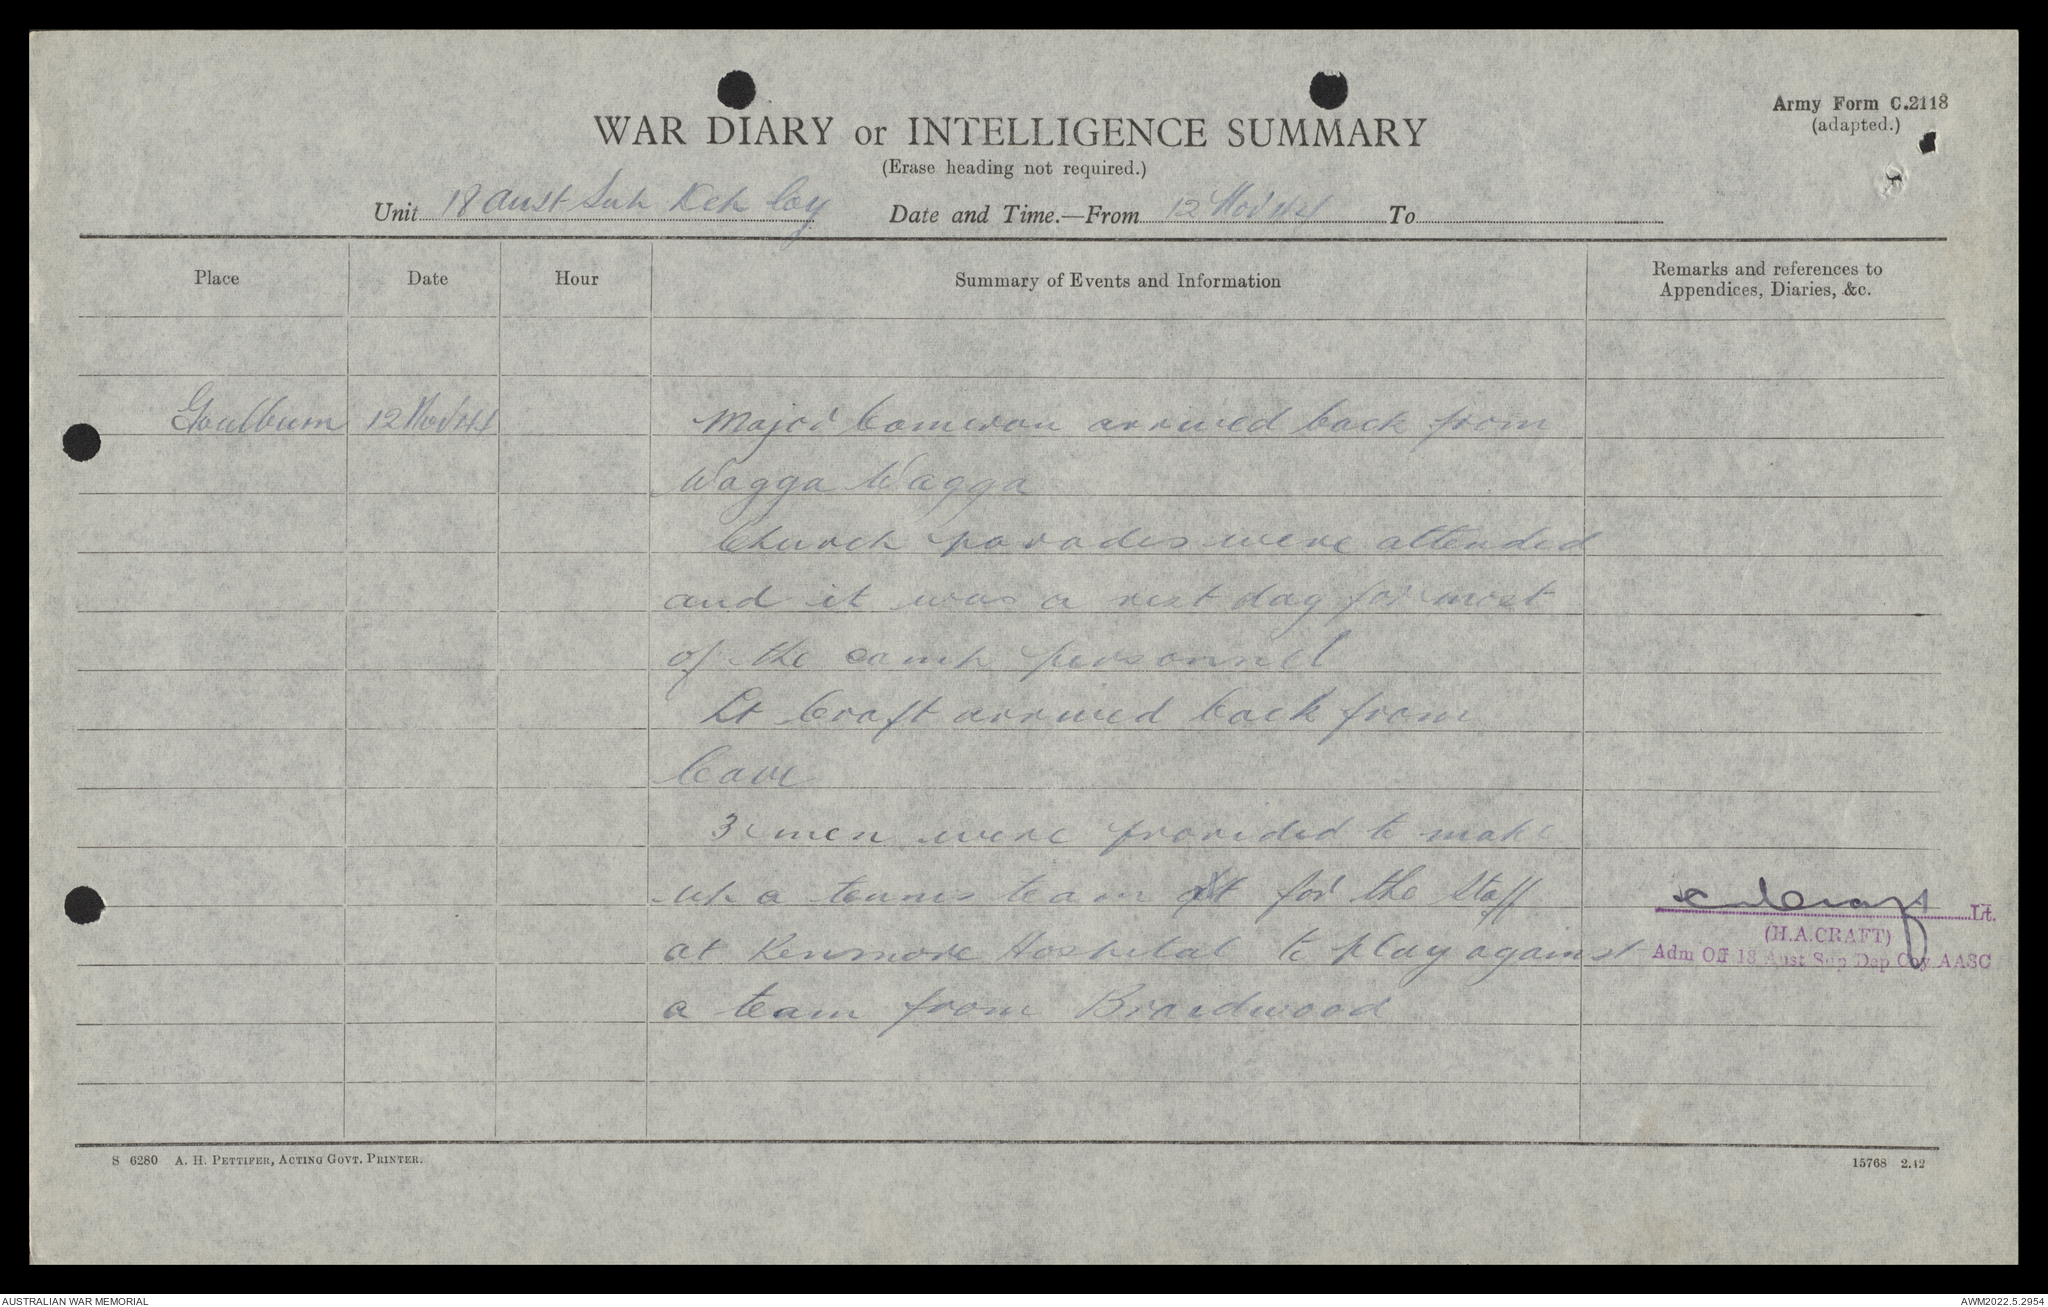 Army Form C.2118
(adapted.)
WAR DIARY or INTELLIGENCE SUMMARY
(Erase heading not required.)
Unit 18 Aust Sup Dep Coy Date and Time.—From 12 Nov 44 To
Place Date Hour Summary of Events and Information Remarks and references to Appendices, Diaries, &c.
Goulburn 12 Nov 44 Major Cameron arrived back from
Wagga Wagga
Church parades were attended
and it was a rest day for most
of the camp personnel
Lt Craft arrived back from
leave
3 men were provided to make
up a tennis team for the Staff
at Kenmore Hospital to play against
a team from Braidwood
Lt.
(H.A.CRAFT)
Adm Off 18 Aust Sup Dep Coy AASC
S 6280 A. H. PETTIFER, ACTING GOVT. PRINTER.
15768 2.42
AUSTRALIAN WAR MEMORIAL
AWM2022.5.2954